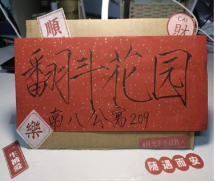 順
CAI
財
翻斗花园
南八公寓209
樂
随遇而安